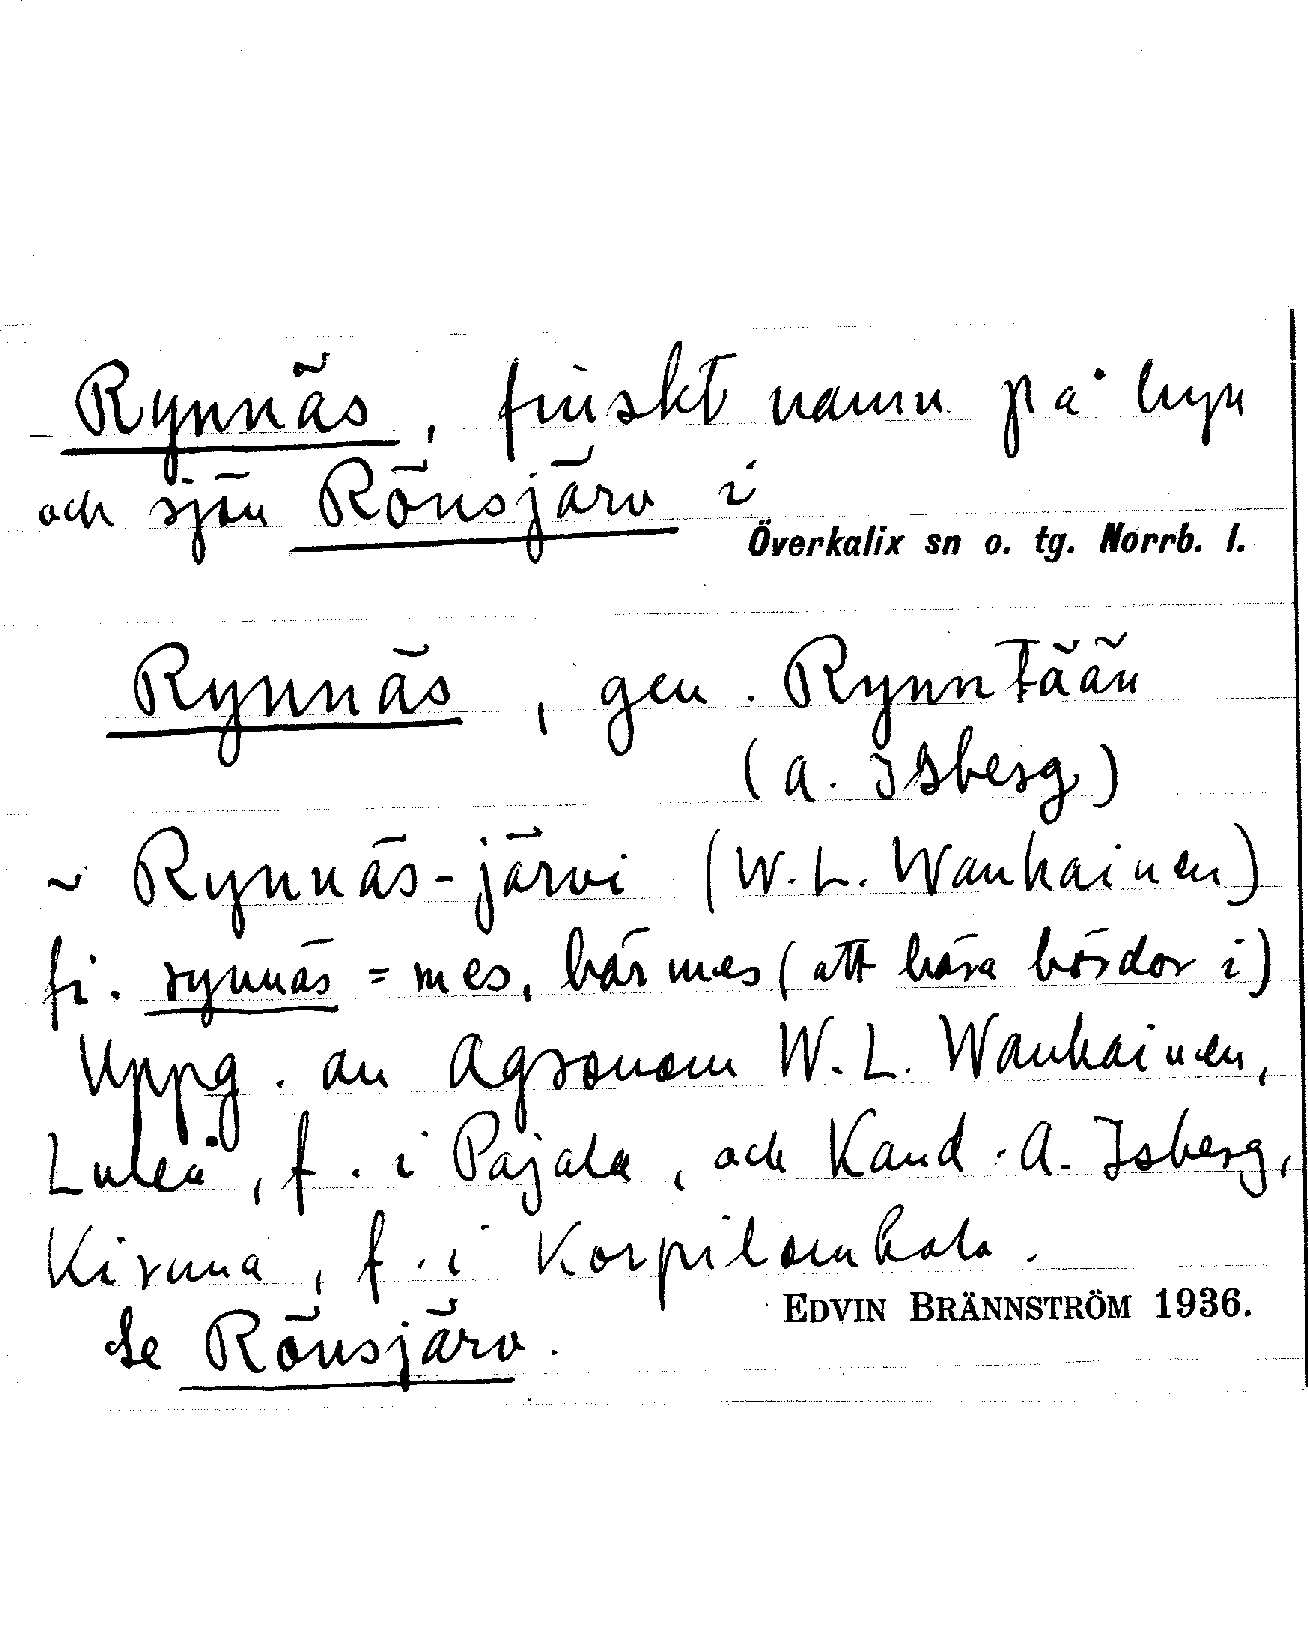 Rynnäs, finskt namn på byn
och sjön Rönsjärv i
Överkalix sn o. tg. Norrb. l.
Rynnäs, gen. Rynntään
(A. Isberg)
~ Rynnäs-järvi (W. L. Wanhainen)
fi. rynnäs = mes, bärmes (att bära bördor i)
Uppg. av Agronom W. L. Wanhainen,
Luleå, f. i Pajala, och Kand. A. Isberg,
Kiruna, f. i Korpilombolo.
EDVIN BRÄNNSTRÖM 1936.
Se Rönsjärv.